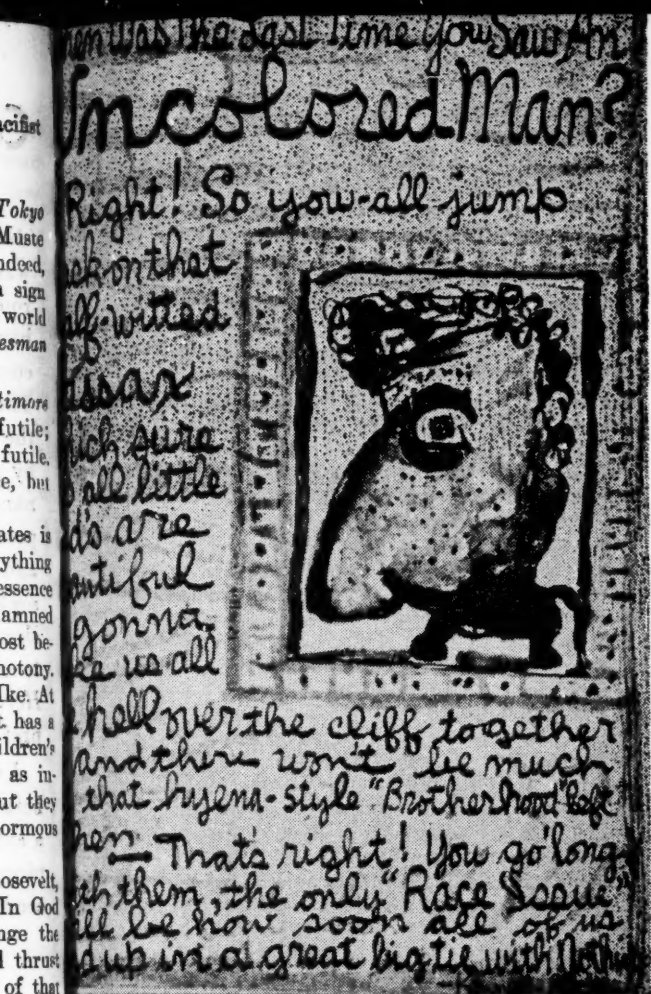 acifist
Tokyo
Muste
ndeed,
sign
world
esman
timore
futile;
futile.
e, but
ates is
ything
essence
amned
ost be-
notony.
Ike. At
t. has a
ildren's
as in-
ut they
ormous
osevelt,
In God
nge the
l thrust
of that
en was the Last Time You Saw An
Uncolored Man?
Right! So you-all jump
ck on that
lf-witted
assax
ich sure
s all little
d's are
autiful
gonna
ke us all
hell over the cliff together
and there won't be much
that hyena-style "Brotherhood" left
hen — That's right! You go 'long
ith them, the only "Race Issue"
ill be how soon all of us
d up in a great big tie with Nothin